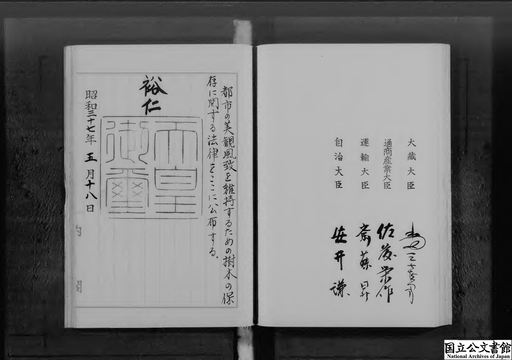 都市の美観風致を維持するための樹木の保
存に関する法律をここに公布する。
裕仁
天皇
御璽
昭和三十七年 五月十八日
大蔵大臣
通商産業大臣 佐藤榮作
運輸大臣 斎藤昇
自治大臣 安井謙
国立公文書館
National Archives of Japan